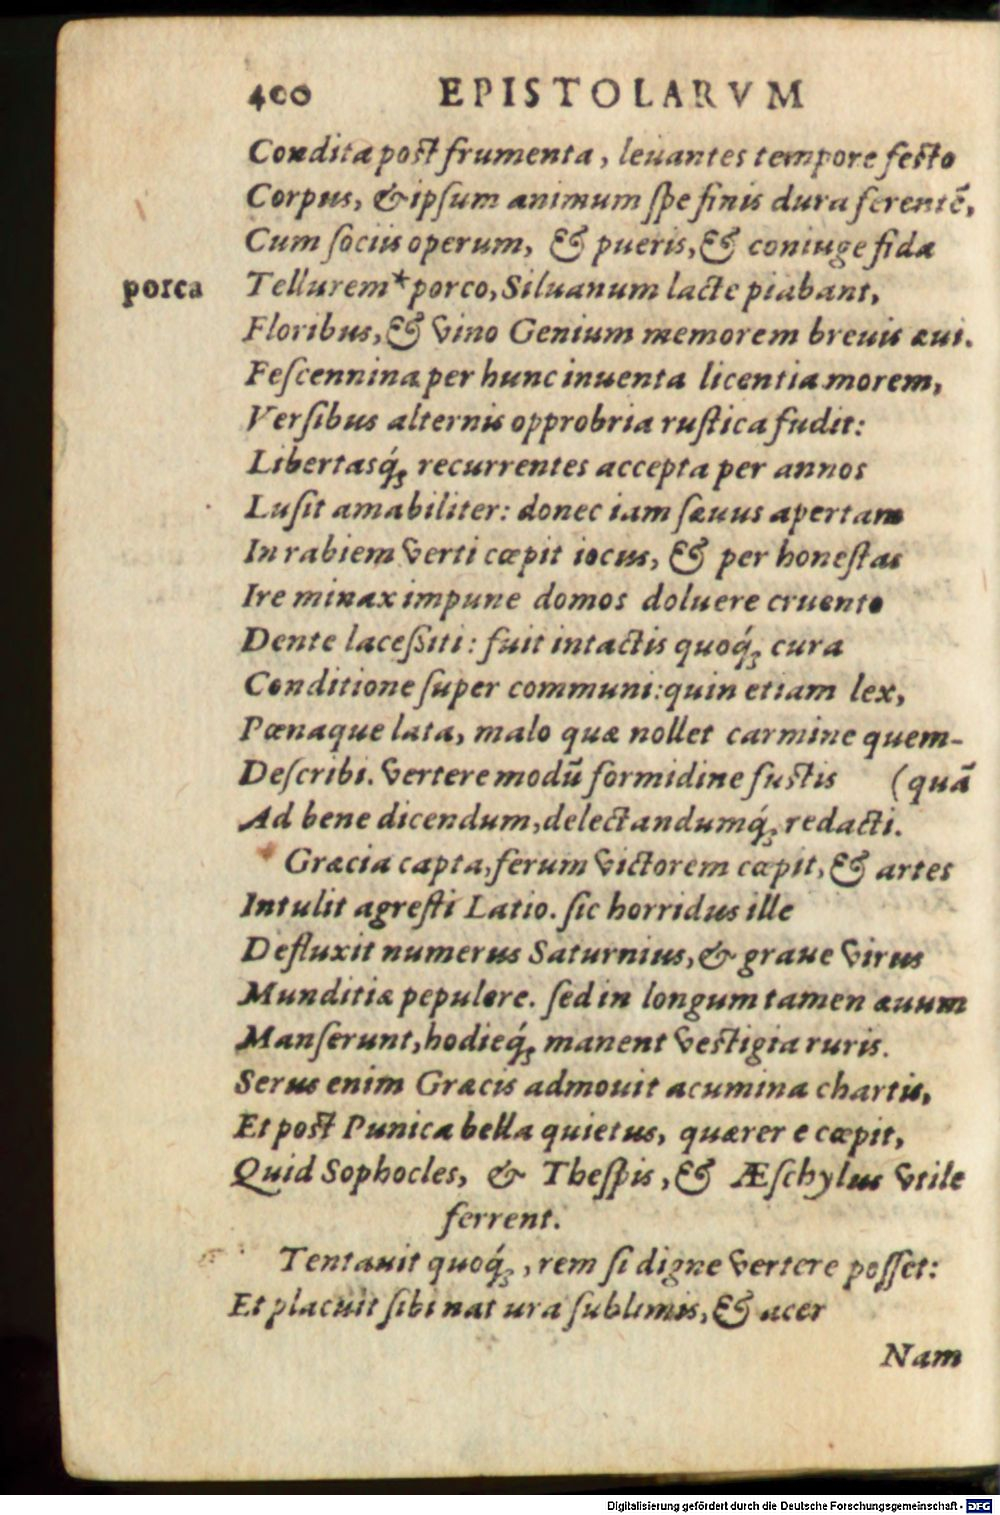 400 EPISTOLARVM
Condita post frumenta, leuantes tempore festo
Corpus, & ipsum animum spe finis dura ferentē,
Cum sociis operum, & pueris, & coniuge fida
porca Tellurem * porco, Siluanum lacte piabant,
Floribus, & vino Genium memorem breuis æui.
Fescennina per hunc inuenta licentia morem,
Versibus alternis opprobria rustica fudit:
Libertasq́ꝫ recurrentes accepta per annos
Lusit amabiliter: donec iam sæuus apertam
In rabiem verti cœpit iocus, & per honestas
Ire minax impune domos doluere cruento
Dente lacessiti: fuit intactis quoq́ꝫ cura
Conditione super communi: quin etiam lex,
Pœnaque lata, malo quæ nollet carmine quem-
Describi. vertere modū formidine fustis (quā
Ad bene dicendum, delectandumq́ꝫ redacti.
Græcia capta, ferum victorem cœpit, & artes
Intulit agresti Latio. sic horridus ille
Defluxit numerus Saturnius, & graue virus
Munditiæ pepulere. sed in longum tamen æuum
Manserunt, hodieq́ꝫ manent vestigia ruris.
Serus enim Græcis admouit acumina chartis,
Et post Punica bella quietus, quærer e cœpit,
Quid Sophocles, & Thespis, & Æschylus vtile
ferrent.
Tentauit quoq́ꝫ, rem si digne vertere posset:
Et placuit sibi nat ura sublimis, & acer
Nam
Digitalisierung gefördert durch die Deutsche Forschungsgemeinschaft - DFG